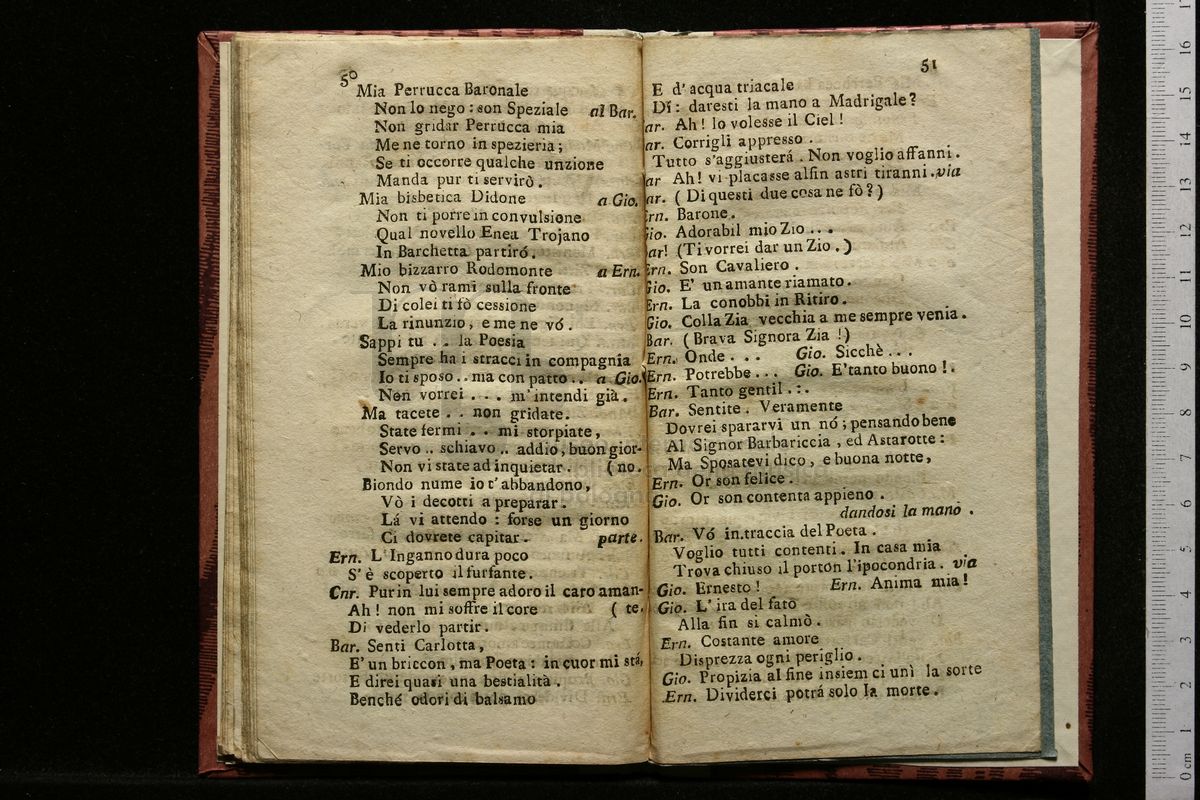 50
Mia Perrucca Baronale
Non lo nego : son Speziale al Bar.
Non gridar Perrucca mia
Me ne torno in spezieria ;
Se ti occorre qualche unzione
Manda pur ti servirò .
Mia bisbetica Didone a Gio.
Non ti porre in convulsione
Qual novello Enea Trojano
In Barchetta partiró .
Mio bizzarro Rodomonte a Ern.
Non vò rami sulla fronte
Di colei ti fò cessione
La rinunzio , e me ne vó .
Sappi tu . . la Poesia
Sempre ha i stracci in compagnia
Io ti sposo . . ma con patto . . a Gio.
Non vorrei . . . m'intendi già .
Ma tacete . . non gridate .
State fermi . . mi storpiate ,
Servo . . schiavo . . addio , buon gior-
Non vi state ad inquietar . ( no .
Biondo nume io t'abbandono ,
Vò i decotti a preparar .
Lá vi attendo : forse un giorno
Ci dovrete capitar . parte .
Ern. L'Inganno dura poco
S'è scoperto il furfante .
Cnr. Pur in lui sempre adoro il caro aman-
Ah ! non mi soffre il core ( te .
Di vederlo partir .
Bar. Senti Carlotta ,
E' un briccon , ma Poeta : in cuor mi stá ,
E direi quasi una bestialità .
Benché odori di balsamo
51
E d'acqua triacale
Di : daresti la mano a Madrigale ?
ar. Ah ! lo volesse il Ciel !
ar. Corrigli appresso .
Tutto s'aggiusterá . Non voglio affanni .
ar Ah ! vi placasse alfin astri tiranni . via
ar. ( Di questi due cosa ne fò ? )
rn. Barone .
io. Adorabil mio Zio . . .
ar! (Ti vorrei dar un Zio . )
Ern. Son Cavaliero .
Gio. E' un amante riamato .
Ern. La conobbi in Ritiro .
Gio. Colla Zia vecchia a me sempre venia .
Bar. ( Brava Signora Zia ! )
Ern. Onde . . . Gio. Sicchè . . .
Ern. Potrebbe . . . Gio. E' tanto buono ! .
Ern. Tanto gentil . : .
Bar. Sentite . Veramente
Dovrei spararvi un nó ; pensando bene
Al Signor Barbariccia , ed Astarotte :
Ma Sposatevi dico , e buona notte ,
Ern. Or son felice .
Gio. Or son contenta appieno .
dandosi la mano .
Bar. Vó in.traccia del Poeta .
Voglio tutti contenti . In casa mia
Trova chiuso il portón l'ipocondria . via
Gio. Ernesto ! Ern. Anima mia !
Gio. L'ira del fato
Alla fin si calmò .
Ern. Costante amore
Disprezza ogni periglio .
Gio. Propizia al fine insiem ci unì la sorte
Ern. Dividerci potrá solo la morte .